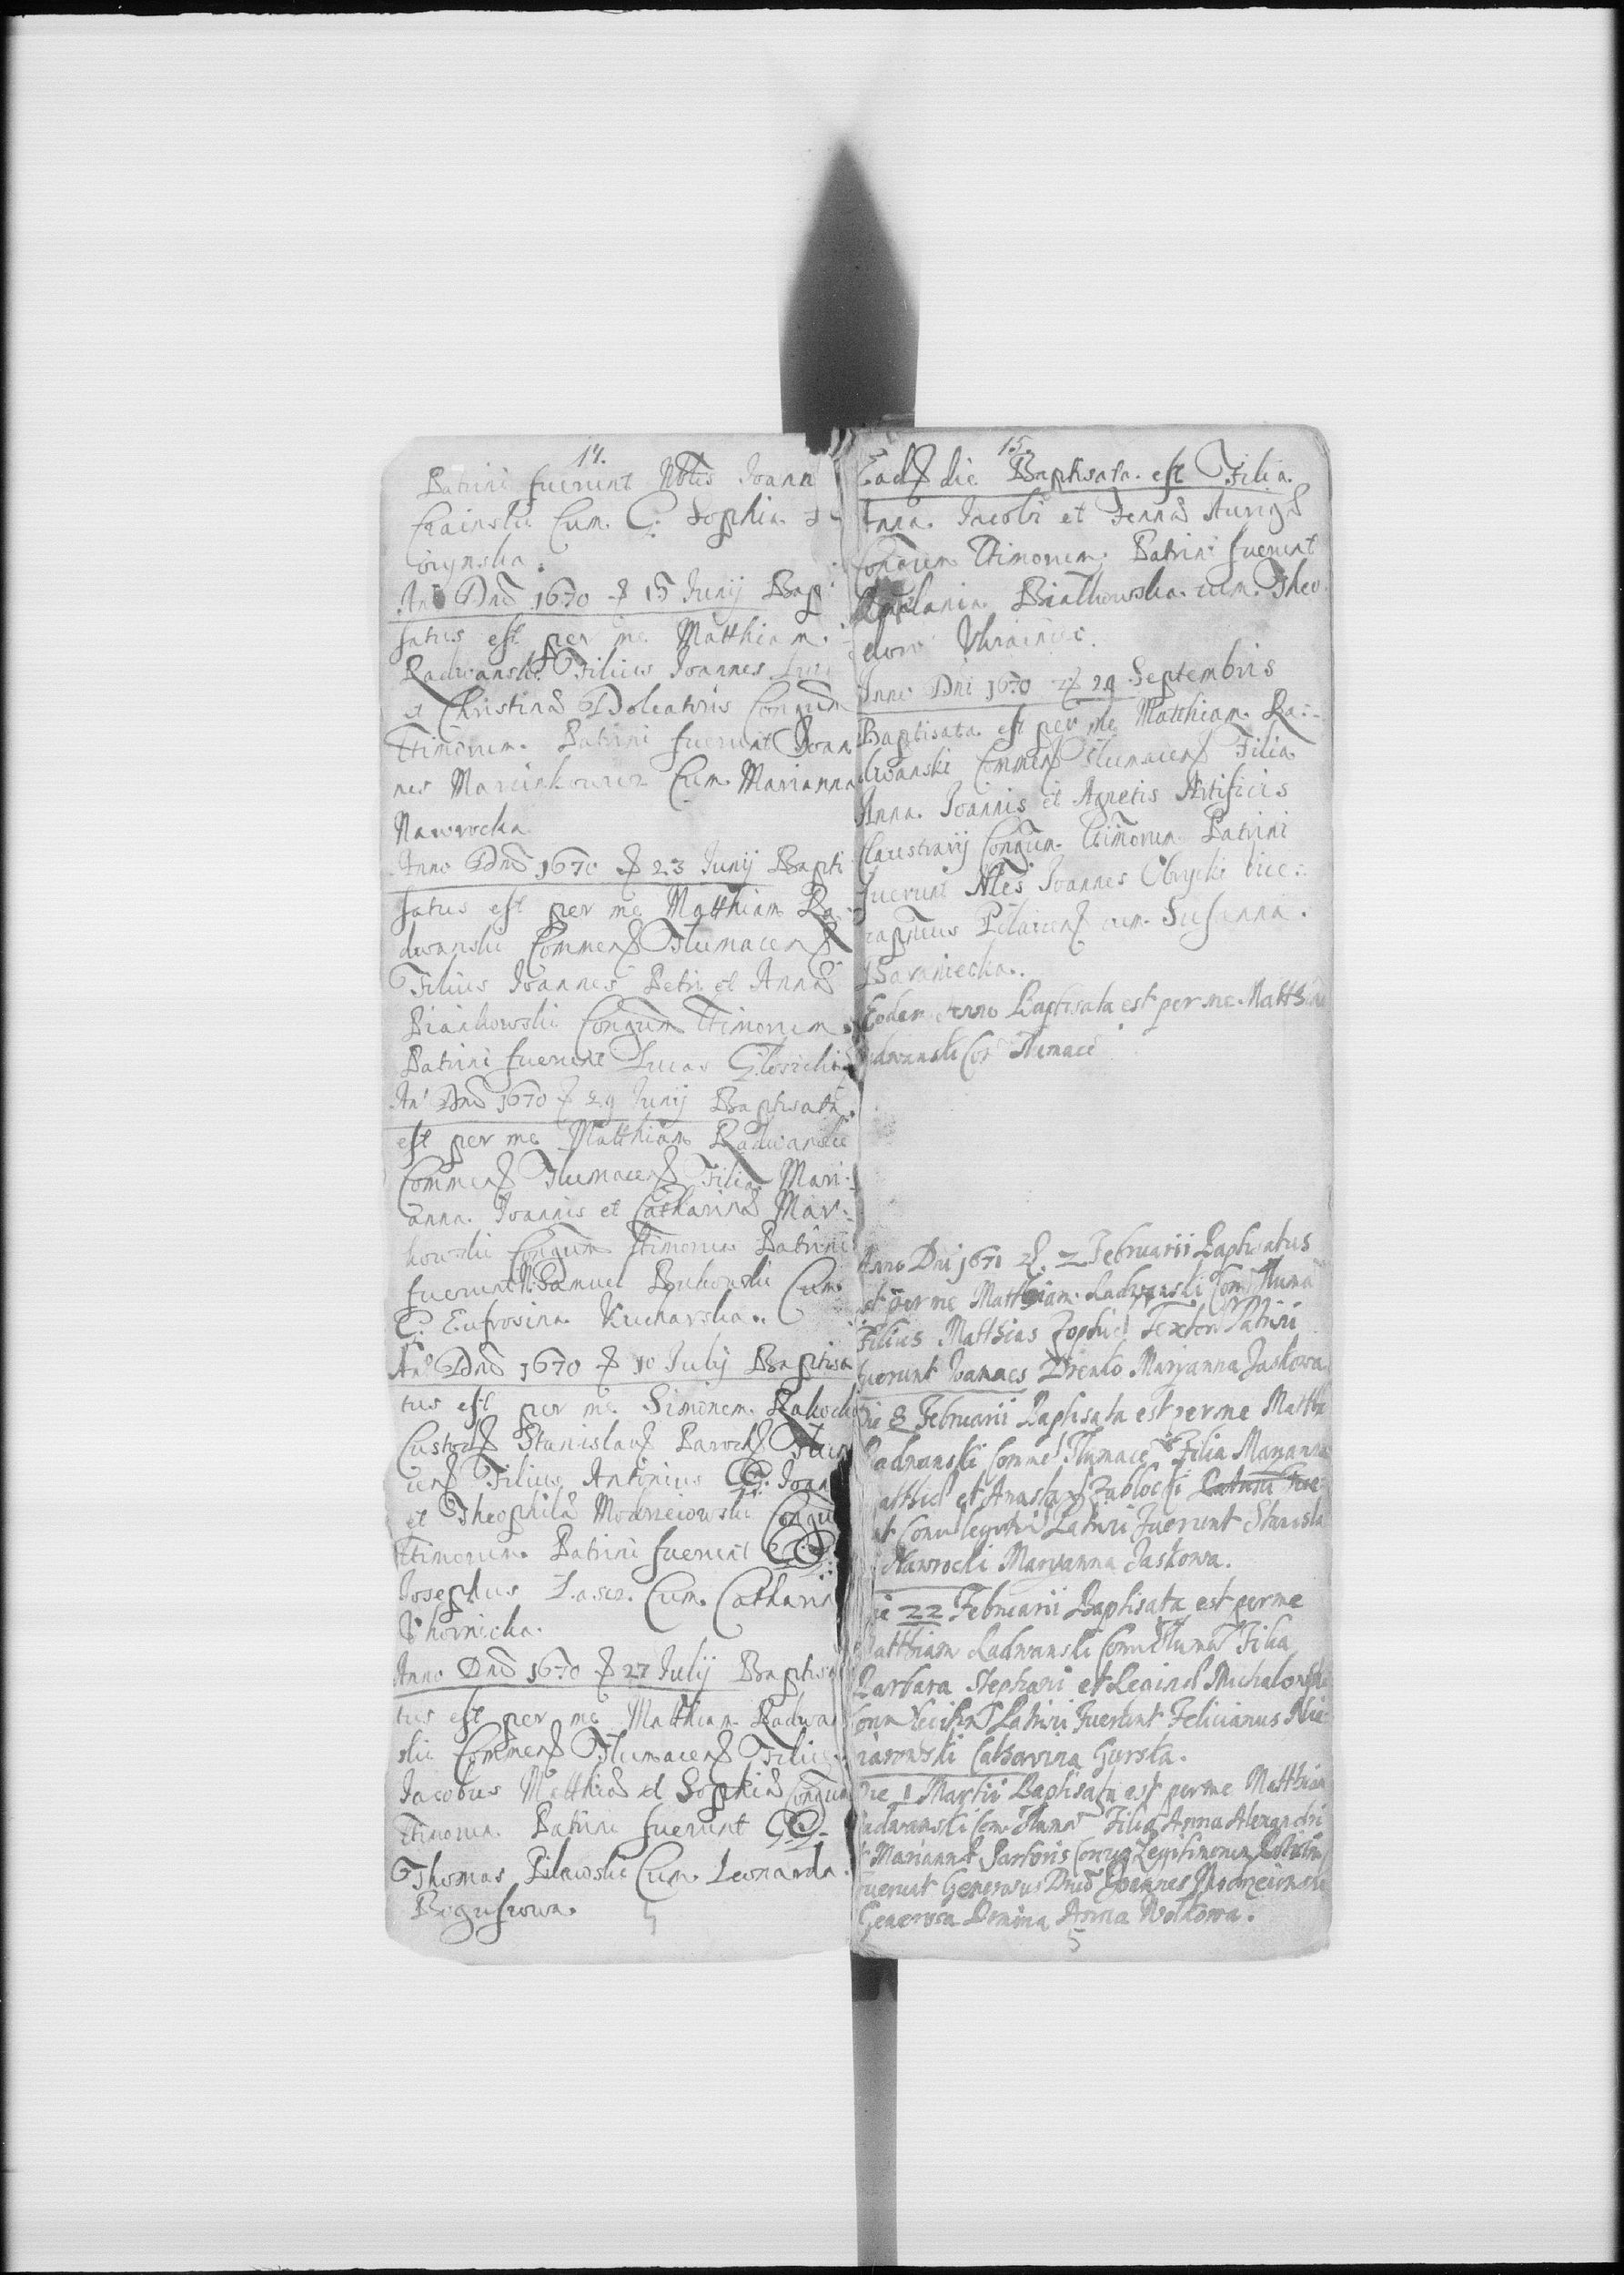 14.
Patrini fuerunt Nbles Joann
Crainski Cum. G. Sophia
An. Dnd 1670 15 Junij Bap
satus est per me Matthiam.
Radwansk. Filius Joannes
et Christina Doleatoris Congum
Ttimorum. Patrini fuerunt Joan
nes Marcinkowicz Cum. Marianna
Nawrocka
Anno Dnd 1670 23 Junij Bapti
satus est per me Matthiam Ra-
dwanski Commend Tlumacens
Filius Joannes Petri et Anna
Piankowski Congum Ttimorum.
Patrini fuerunt Lucas
An. Dnd 1670 29 Junij Baptisata.
est per me Matthiam Radwanski
Commend Tlumacens Filia Mari-
anna. Joannis et Catharina Mar-
kowski Congum Ttimorum Patrini
fuerunt N. Samuel Bukowski Cum
G. Eufrosina Kucharska..
An. Dnd 1670 10 Julij Baptisa
tus est per me Simonem. Rakocki
Custod Stanislaus Paroch
cens Filius Antonius GG. Joan
et Theophila Modrzeiowski Congu
Ttimorum. Patrini fuerunt GG.
Josephus Lasco. Cum. Catharin
Anno Dnd 1670 27 Julij Baptisa
tus est per me Matthiam Radwa
ski Commend Tlumacens Filius
Jacobus Matthia et Sophia Congum
Ttimorum. Patrini fuerunt GG.
Thomas Pilawski Cum. Leonarda.
Bogusrowa.
5
15.
Ead die Baptisata. est Filia.
Anna. Jacobi et Auriga
Congum Ttimorum. Patrini fuerunt
Bialkowska. cum. Theo
Ukrainiec.
Anno Dni 1670 29 Septembris
Baptisata est per me Matthiam Ra-
dwanski Commend Tlumacens Filia
Anna. Joannis et Agnetis Artificis
Claustrarij Congum. Ttimorum Patrini
fuerunt Nles Joannes Obrycki vice:
cum. Susanna.
Baraniecka.
Eodem Anno Baptisata est per me Matthia
adwanski Co Tlumace
Anno Dni 1671 2 Februarii Baptisatus
est per me Matthiam Radwanski Com Tluma
Filius Matthias Textor Patrini
fuerunt Joannes Maryanna Jaskowa
Die 8 Februarii Baptisata est per me Matthi
Radwanski Comme Tlumace Filia Maryanna
et Zablocki
Patrini Fuerunt Stanisla
Nawrocki Maryanna Jaskowa.
Die 22 Februarii Baptisata est per me
Matthiam Radwanski Com Tluma Filia
Barbara Stephani et Regina Michalowski
Patrini Fuerunt Felicianus Nie
Catharina Gorska.
Die 1 Martii Baptisata est per me Matthiam
Radwanski Com Tluma Filia Anna Alexandri
et Marianna Sartoris Conyug Legitimorum Patrini
fuerunt Generosus Dnus Joannes Modrzeiowski
Generosa Domina Anna Wolkowa.
5